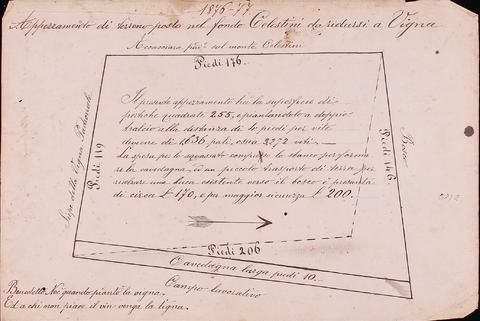 1876-77
Appezzamento di terreno posto nel fondo Celestini da ridursi a Vigna
sul monte Celestini
Piedi 176.
Il presente appezzamento ha la superficie di
pertiche quadrate 255, e piantandolo a doppio
tralcio alla distanza di 10 piedi per vite
divenire di 1636 pali, ossia 3272 viti.—
La spesa per lo squassato compreso lo sbanco per forma-
re la cavedagna, ed un piccolo trasporto di terra per
restaurare una buca esistente verso il bosco è presunta
di circa £ 170, e per maggior sicurezza £ 200.
Piedi 119
Siepe della Vigna
Piedi 146
Bosco
Piedi 206
Cavedagna larga piedi 10.
Campo lavorativo
Benedetto Noè quando piantò la vigna.
Ed a chi non piace il vin venga la tigna.